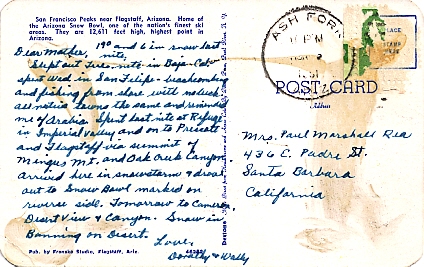 San Francisco Peaks near Flagstaff, Arizona. Home of
the Arizona Snow Bowl, one of the nation's finest ski
areas. They are 12,611 feet high, highest point in
Arizona.
Dear Mother, 19° and 6 in snow last
nite,
Slept out Tues. nite in Baja Cal.
spent Wed in San Felipe - beachcombing
and fishing from shore with no luck
all notice towns the same and reminded
me of Arabia Spent last nite at Refuge
in Imperial valley and on to Prescott
and Flagstaff via summit of
Mingus Mt. and Oak Creek Canyon
arrived here in snowstorm & drove
out to Snow Bowl marked on
reverse side. Tomorrow to Cameron
Desert View & Canyon. Snow in
Banning on Desert.
Love,
Dorothy & Wally
Pub. by Fronske Studio, Flagstaff, Ariz.
ASH FORK
PM
1951
PLACE
STAMP
HERE
POST CARD
Address
Mrs. Paul Marshall Rea
436 E. Padre St.
Santa Barbara
California